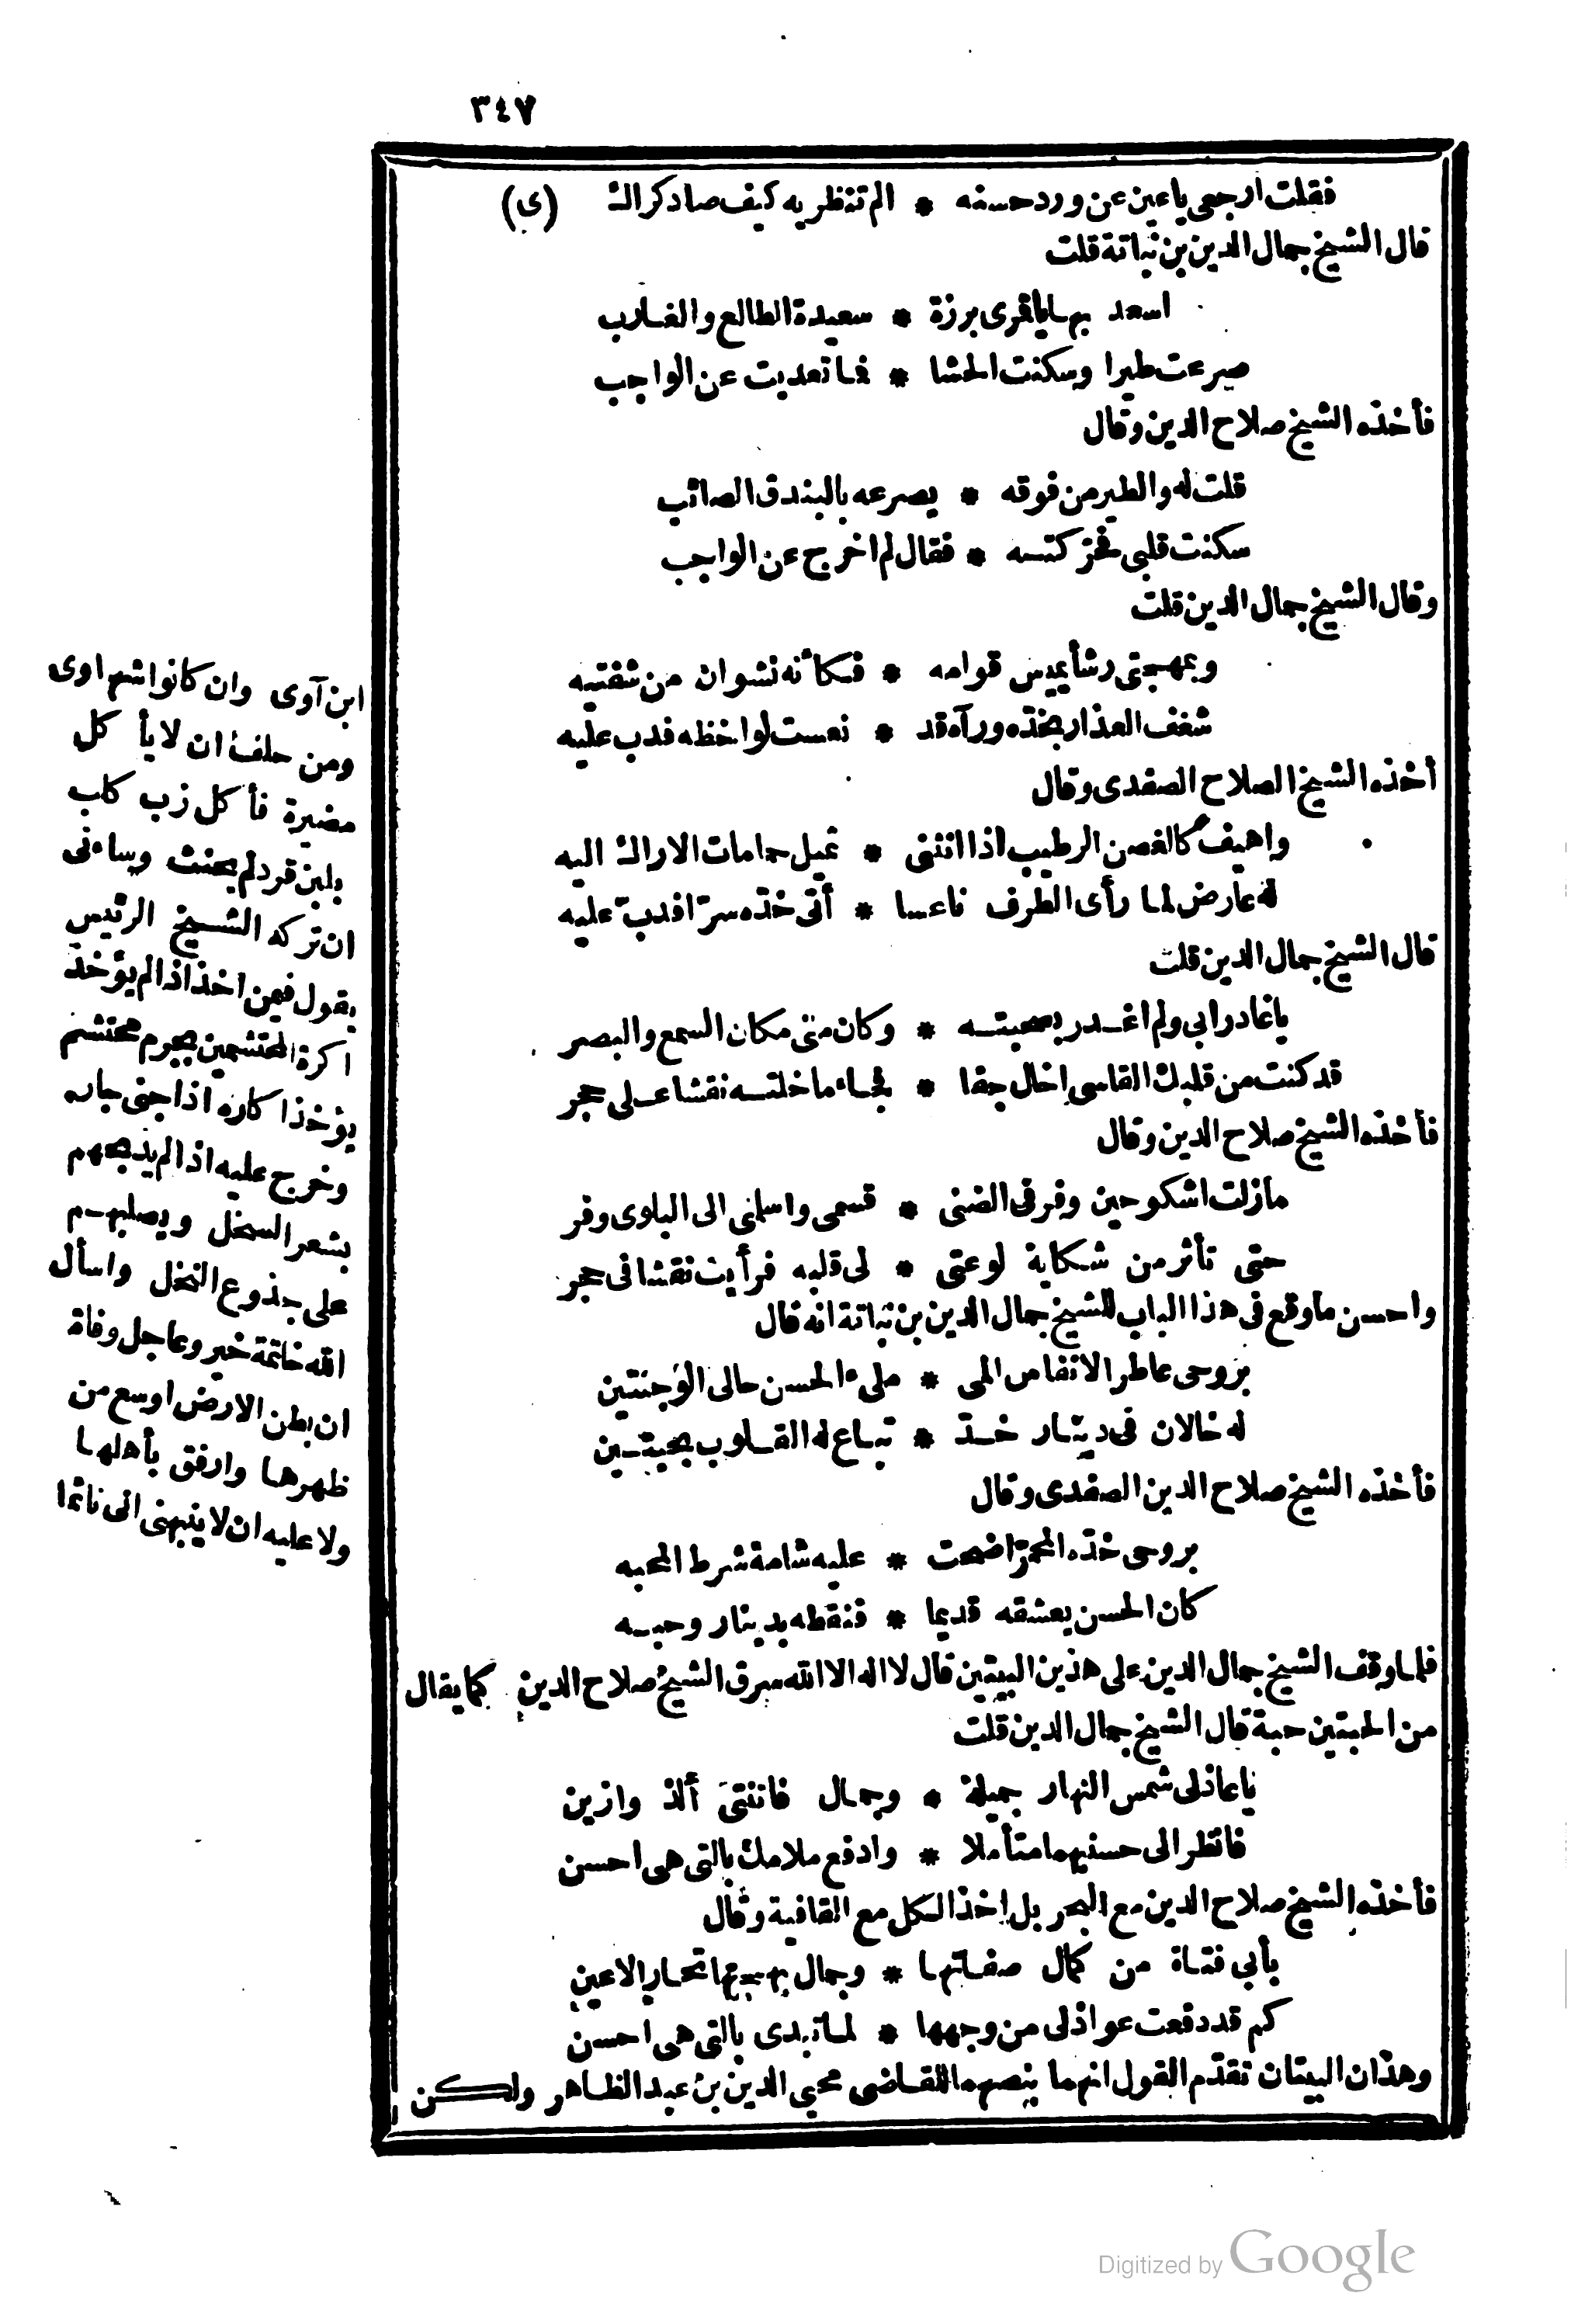 ٣٤٧
فقلت ارجعى ياعين عن ورد حسنه * الم تنظريه كيف صاد كراك (ى)
قال الشيخ جمال الدين بن نباتة قلت
اسعد بها ياقمرى برزة * سعيدة الطالع والغارب
صرعت طيرا وسكنت الحشا * فما تعديت عن الواجب
فأخذه الشيخ صلاح الدين وقال
قلت له والطير من فوقه * يصرعه بالبندق الصائب
سكنت قلبى فحركته * فقال لم اخرج عن الواجب
وقال الشيخ جمال الدين قلت
وبمهجتى رشأ يميس قوامه * فكأنه نشوان من شفتيه
شغف العذار بخده ورآه قد * نعست لواحظه فدب عليه
أخذه الشيخ الصلاح الصفدى وقال
واهيف كالغصن الرطيب اذا انثنى * تميل حمامات الاراك اليه
له عارض لما رأى الطرف ناعسا * أتى خده سرّا فدبّ عليه
قال الشيخ جمال الدين قلت
ياغادرا بى ولم اغدر بصحبته * وكان منى مكان السمع والبصر
قد كنت من قلبك القاسى اخال جفا * فجاء ما خلته نقشا على حجر
فأخذه الشيخ صلاح الدين وقال
مازلت اشكو حين وفر فى الضنى * قسمى واسلمنى الى البلوى وفر
حتى تأثر من شكاية لوعتى * لى قلبه فرأيت نقشا فى حجر
واحسن ما وقع فى هذا الباب للشيخ جمال الدين بن نباتة انه قال
بروحى عاطر الانفاس المى * ملىء الحسن حالى الوجنتين
له خالان فى دينار خد * تباع له القلوب بحبتين
فأخذه الشيخ صلاح الدين الصفدى وقال
بروحى خده المحمرّ اضحت * عليه شامة شرط المحبه
كان الحسن يعشقه قديما * فنقطه بدينار وحبه
فلما وقف الشيخ جمال الدين على هذين البيتين قال لا اله الا الله سرق الشيخ صلاح الدين كما يقال
من الحبتين حبة قال الشيخ جمال الدين قلت
ياعاذلى شمس النهار جميلة * وجمال فاتنتى ألذ وازين
فانظر الى حسنيهما متأملا * وادفع ملامك بالتى هى احسن
فأخذه الشيخ صلاح الدين مع البحر بل اخذ الكل مع القافية وقال
بأبى فتاة من كمال صفاتها * وجمال بهجتها تحار الاعين
كم قد دفعت عواذلى من وجهها * لما تبدى بالتى هى احسن
وهذان البيتان تقدّم القول انهما بنصهما للقاضى محيى الدين بن عبد الظاهر ولكن
ابن آوى وان كانوا شم اوى
ومن حلف ان لا يأكل
مضيرة فأكل زب كلب
بلبن قرد لم يحنث وساءنى
ان تركه الشيخ الرئيس
يقول فيمن اخذ اذا لم يؤخذ
اكرة المحتشمين بجرم محتشم
يؤخذ اكاره اذا جنى جاره
وخرج عليه اذا لم يذبحهم
بشعر السخل ويصلبهم
على جذوع النخل واسأل
الله خاتمة خير وعاجل وفاة
ان بطن الارض اوسع من
ظهرها وارفق بأهلها
ولا عليه ان لا ينبهنى انى نائما
Digitized by Google